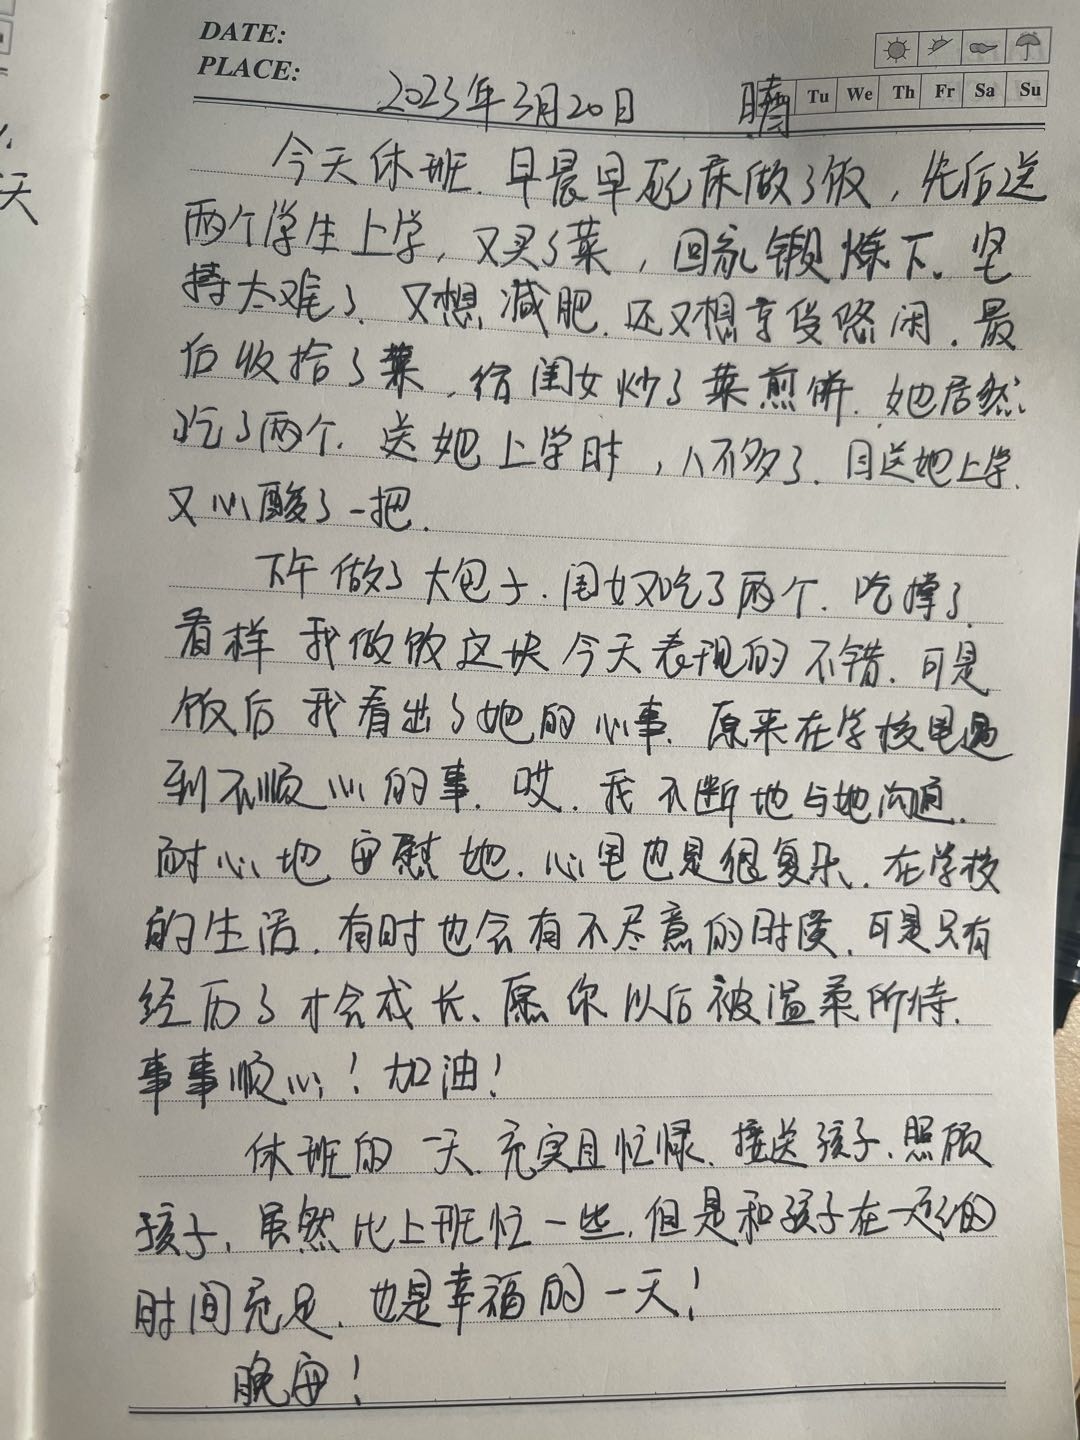 DATE:
PLACE:
2023年3月20日 晴 Tu We Th Fr Sa Su
今天休班.早晨早起床做了饭,先后送
两个学生上学,又买了菜,回家锻炼下.坚
持太难了.又想减肥.还又想享受悠闲.最
后收拾了菜,给闺女炒了菜煎饼.她居然
吃了两个.送她上学时,人不多了.目送她上学.
又心酸了一把.
下午做了大包子.闺女又吃了两个.吃撑了.
看样我做饭这块今天表现的不错.可是
饭后我看出了她的心事.原来在学校里遇
到不顺心的事.哎.我不断地与她沟通.
耐心地安慰她.心里也是很复杂.在学校
的生活.有时也会有不尽意的时候.可是只有
经历了才会成长、愿你以后被温柔所待.
事事顺心!加油!
休班的一天.充实且忙碌.接送孩子.照顾
孩子.虽然比上班忙一些.但是和孩子在一起的
时间充足.也是幸福的一天!
晚安!